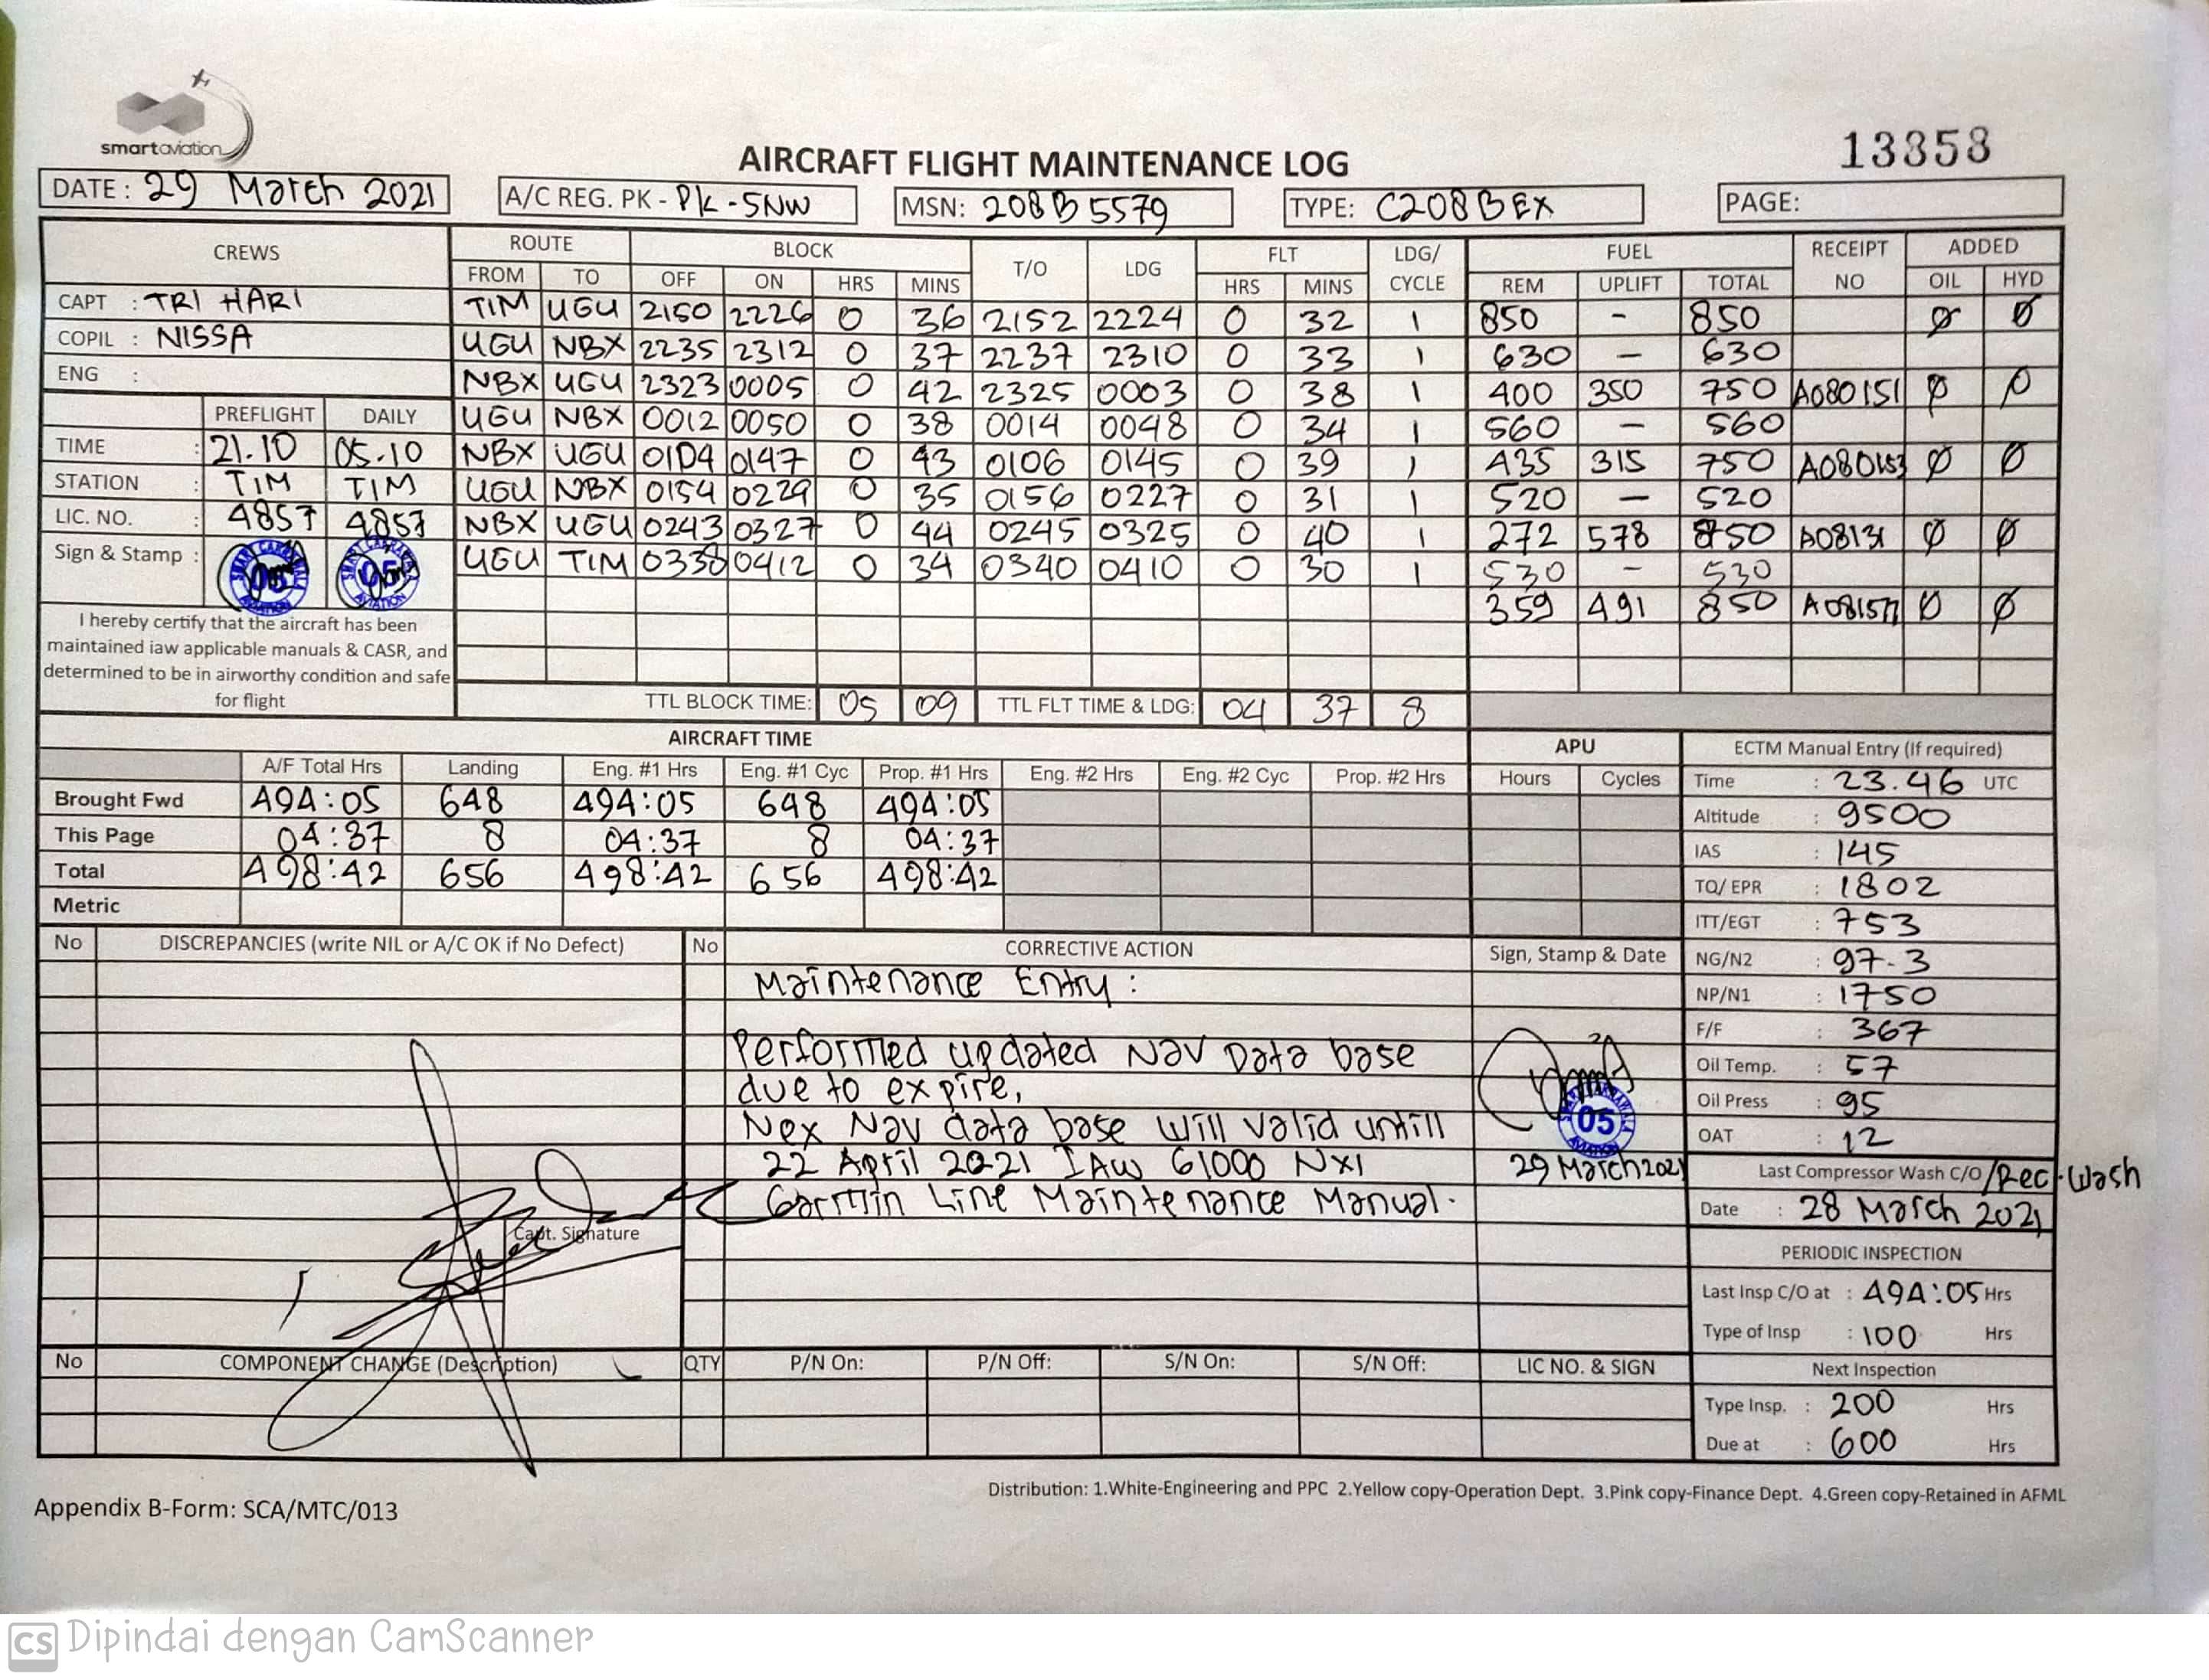 smartaviation
13358
AIRCRAFT FLIGHT MAINTENANCE LOG
DATE: 29 March 2021 A/C REG. PK - PK-SNW MSN: 208B5579 TYPE: C208B EX PAGE:
CREWS ROUTE BLOCK T/O LDG FLT LDG/ CYCLE FUEL RECEIPT NO ADDED
FROM TO OFF ON HRS MINS HRS MINS REM UPLIFT TOTAL OIL HYD
CAPT : TRI HARI TIM UGU 2150 2226 0 36 2152 2224 0 32 1 850 - 850 Ø Ø
COPIL : NISSA UGU NBX 2235 2312 0 37 2237 2310 0 33 1 630 - 630
ENG : NBX UGU 2323 0005 0 42 2325 0003 0 38 1 400 350 750 A080151 Ø Ø
PREFLIGHT DAILY UGU NBX 0012 0050 0 38 0014 0048 0 34 1 560 - 560
TIME : 21.10 05.10 NBX UGU 0104 0147 0 43 0106 0145 0 39 1 435 315 750 Ø Ø
STATION : TIM TIM UGU NBX 0154 0229 0 35 0156 0227 0 31 1 520 - 520
LIC. NO. : 4857 4857 NBX UGU 0243 0327 0 44 0245 0325 0 40 1 272 578 850 Ø Ø
Sign & Stamp : 05 05 UGU TIM 0338 0412 0 34 0340 0410 0 30 1 530 - 530
359 491 850 Ø Ø
I hereby certify that the aircraft has been
maintained iaw applicable manuals & CASR, and
determined to be in airworthy condition and safe
for flight
TTL BLOCK TIME: 05 09 TTL FLT TIME & LDG: 04 37 8
AIRCRAFT TIME APU ECTM Manual Entry (If required)
A/F Total Hrs Landing Eng. #1 Hrs Eng. #1 Cyc Prop. #1 Hrs Eng. #2 Hrs Eng. #2 Cyc Prop. #2 Hrs Hours Cycles Time : 23.46 UTC
Brought Fwd 494:05 648 494:05 648 494:05 Altitude : 9500
This Page 04:37 8 04:37 8 04:37 IAS : 145
Total 498:42 656 498:42 656 498:42 TQ/ EPR : 1802
Metric ITT/EGT : 753
No DISCREPANCIES (write NIL or A/C OK if No Defect) No CORRECTIVE ACTION Sign, Stamp & Date NG/N2 : 97.3
Maintenance Entry : NP/N1 : 1750
F/F : 367
Performed updated Nav Data base Oil Temp. : 57
due to expire, Oil Press : 95
Nex Nav data base will valid untill 05 OAT : 12
22 April 2021 IAW G1000 NXI 29 March 2021 Last Compressor Wash C/O /Rec.Wash
Garmin Line Maintenance Manual. Date : 28 March 2021
Capt. Signature
PERIODIC INSPECTION
Last Insp C/O at : 494:05 Hrs
Type of Insp : 100 Hrs
No COMPONENT CHANGE (Description) QTY P/N On: P/N Off: S/N On: S/N Off: LIC NO. & SIGN Next Inspection
Type Insp. : 200 Hrs
Due at : 600 Hrs
Distribution: 1.White-Engineering and PPC 2.Yellow copy-Operation Dept. 3.Pink copy-Finance Dept. 4.Green copy-Retained in AFML
Appendix B-Form: SCA/MTC/013
CS Dipindai dengan CamScanner